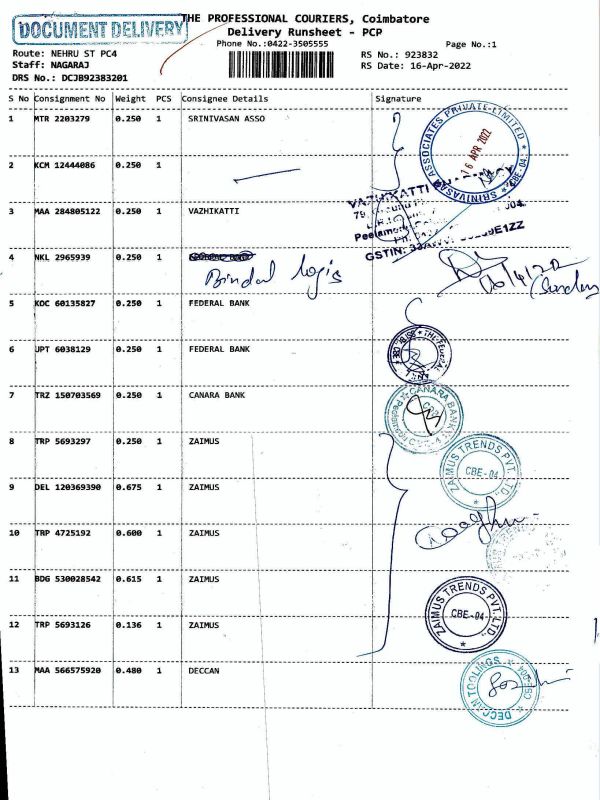 DOCUMENT DELIVERY
THE PROFESSIONAL COURIERS, Coimbatore
Delivery Runsheet - PCP
Phone No.:0422-3505555
Page No.:1
Route: NEHRU ST PC4
RS No.: 923832
Staff: NAGARAJ
RS Date: 16-Apr-2022
DRS No.: DCJB92383201
S No Consignment No Weight PCS Consignee Details Signature
1 MTR 2203279 0.250 1 SRINIVASAN ASSO
SRINIVASAN ASSOCIATES PRIVATE LIMITED
16 APR 2022
CBE-04.
2 KCM 12444086 0.250 1
3 MAA 284805122 0.250 1 VAZHIKATTI
VAZHIKATTI
GSTIN:
4 NKL 2965939 0.250 1
Bindal logis
16/4/22
5 KOC 60135827 0.250 1 FEDERAL BANK
6 JPT 6038129 0.250 1 FEDERAL BANK
7 TRZ 150703569 0.250 1 CANARA BANK
CANARA BANK
8 TRP 5693297 0.250 1 ZAIMUS
ZAIMUS TRENDS PVT. LTD.,
CBE-04
9 DEL 120369390 0.675 1 ZAIMUS
10 TRP 4725192 0.600 1 ZAIMUS
11 BDG 530028542 0.615 1 ZAIMUS
ZAIMUS TRENDS PVT. LTD.,
CBE-04
12 TRP 5693126 0.136 1 ZAIMUS
13 MAA 566575920 0.480 1 DECCAN
DECCAN TOOLINGS